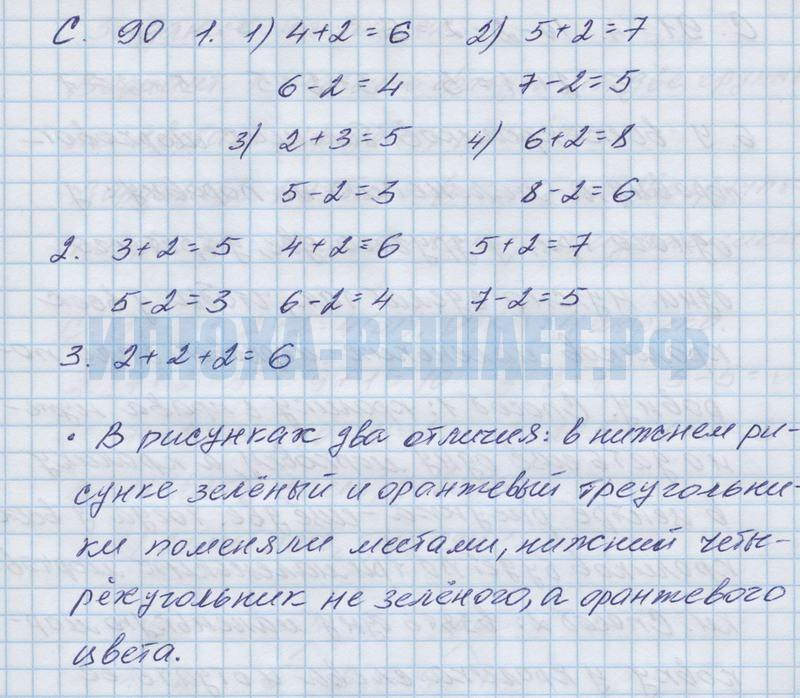 С. 90 1. 1) 4+2=6 2) 5+2=7
6-2=4 7-2=5
3) 2+3=5 4) 6+2=8
5-2=3 8-2=6
2. 3+2=5 4+2=6 5+2=7
5-2=3 6-2=4 7-2=5
ИЛЮХА-РЕШАЕТ.РФ
3. 2+2+2=6
• В рисунках два отличия: в нижнем ри-
сунке зелёный и оранжевый треугольни-
ки поменяли местами, нижний четы-
рёхугольник не зелёного, а оранжевого
цвета.